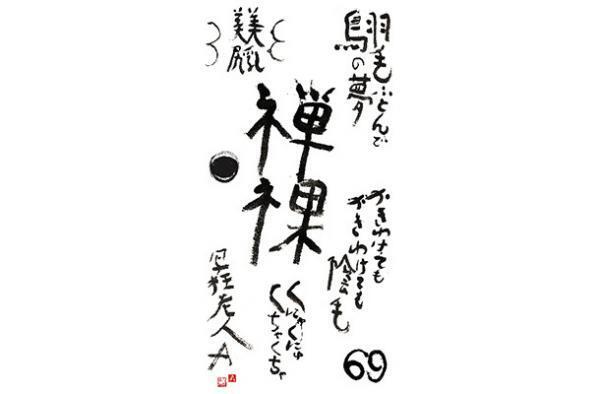 羽毛ふとんで
鳥の夢
かきわけても
かきわけても
陰毛
69
禅
裸
くちゃくちゃ
美乳
美尻
写狂老人A